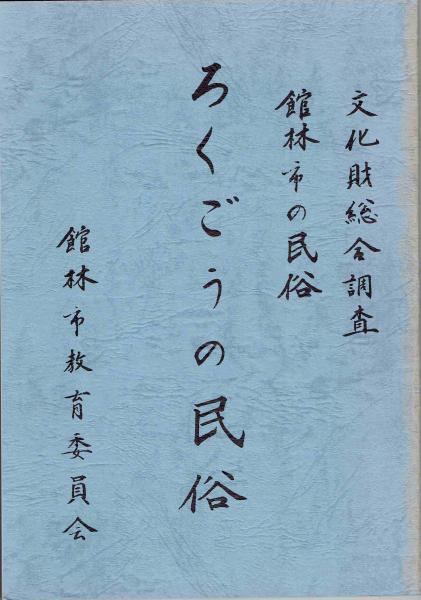 文化財総合調査
館林市の民俗
ろくごうの民俗
館林市教育委員会